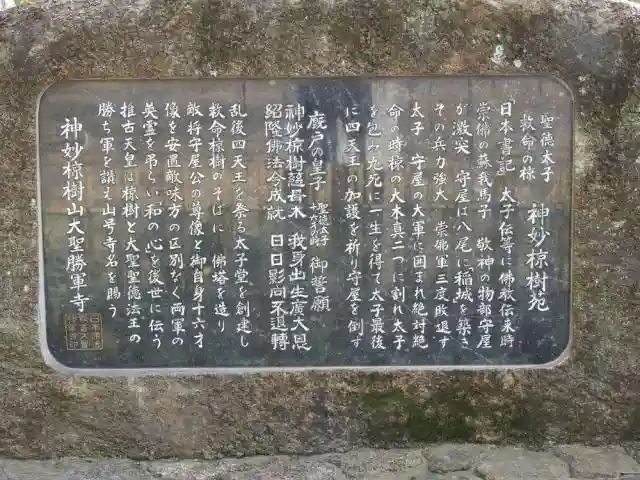 聖徳太子
救命の椋
神妙椋樹苑
日本書記 太子伝等に佛教伝来時
崇佛の蘇我馬子 敬神の物部守屋
が激突 守屋は八尾に稲城を築き
その兵力強大 崇佛軍三度敗退す
太子 守屋の大軍に囲まれ絶対絶
命の時椋の大木真二つに割れ太子
を包み九死に一生を得て太子最後
に四天王の加護を祈り守屋を倒す
厩戸の皇子 聖徳太子十六才の時 御誓願
神妙椋樹慈母木 我身出生廣大恩
紹隆佛法今成就 日日影向不退轉
乱後四天王を祭る太子堂を創建し
救命椋樹のそばに 佛塔を造り
敵将守屋公の尊像と御自身十六才
像を安置敵味方の区別なく両軍の
英霊を弔らい和の心を後世に伝う
推古天皇は椋樹と大聖聖徳法王の
勝ち軍を讃え山号寺名を賜う
神妙椋樹山大聖勝軍寺